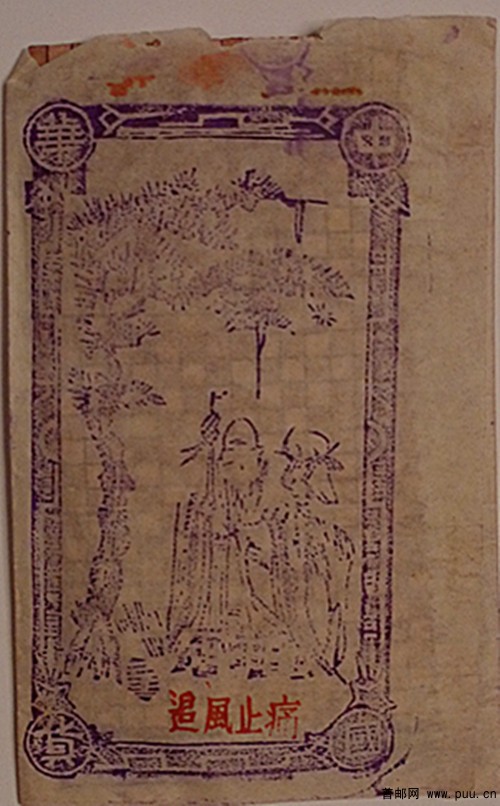 華 中
國
追風止痛
普邮网 www.puu.cn